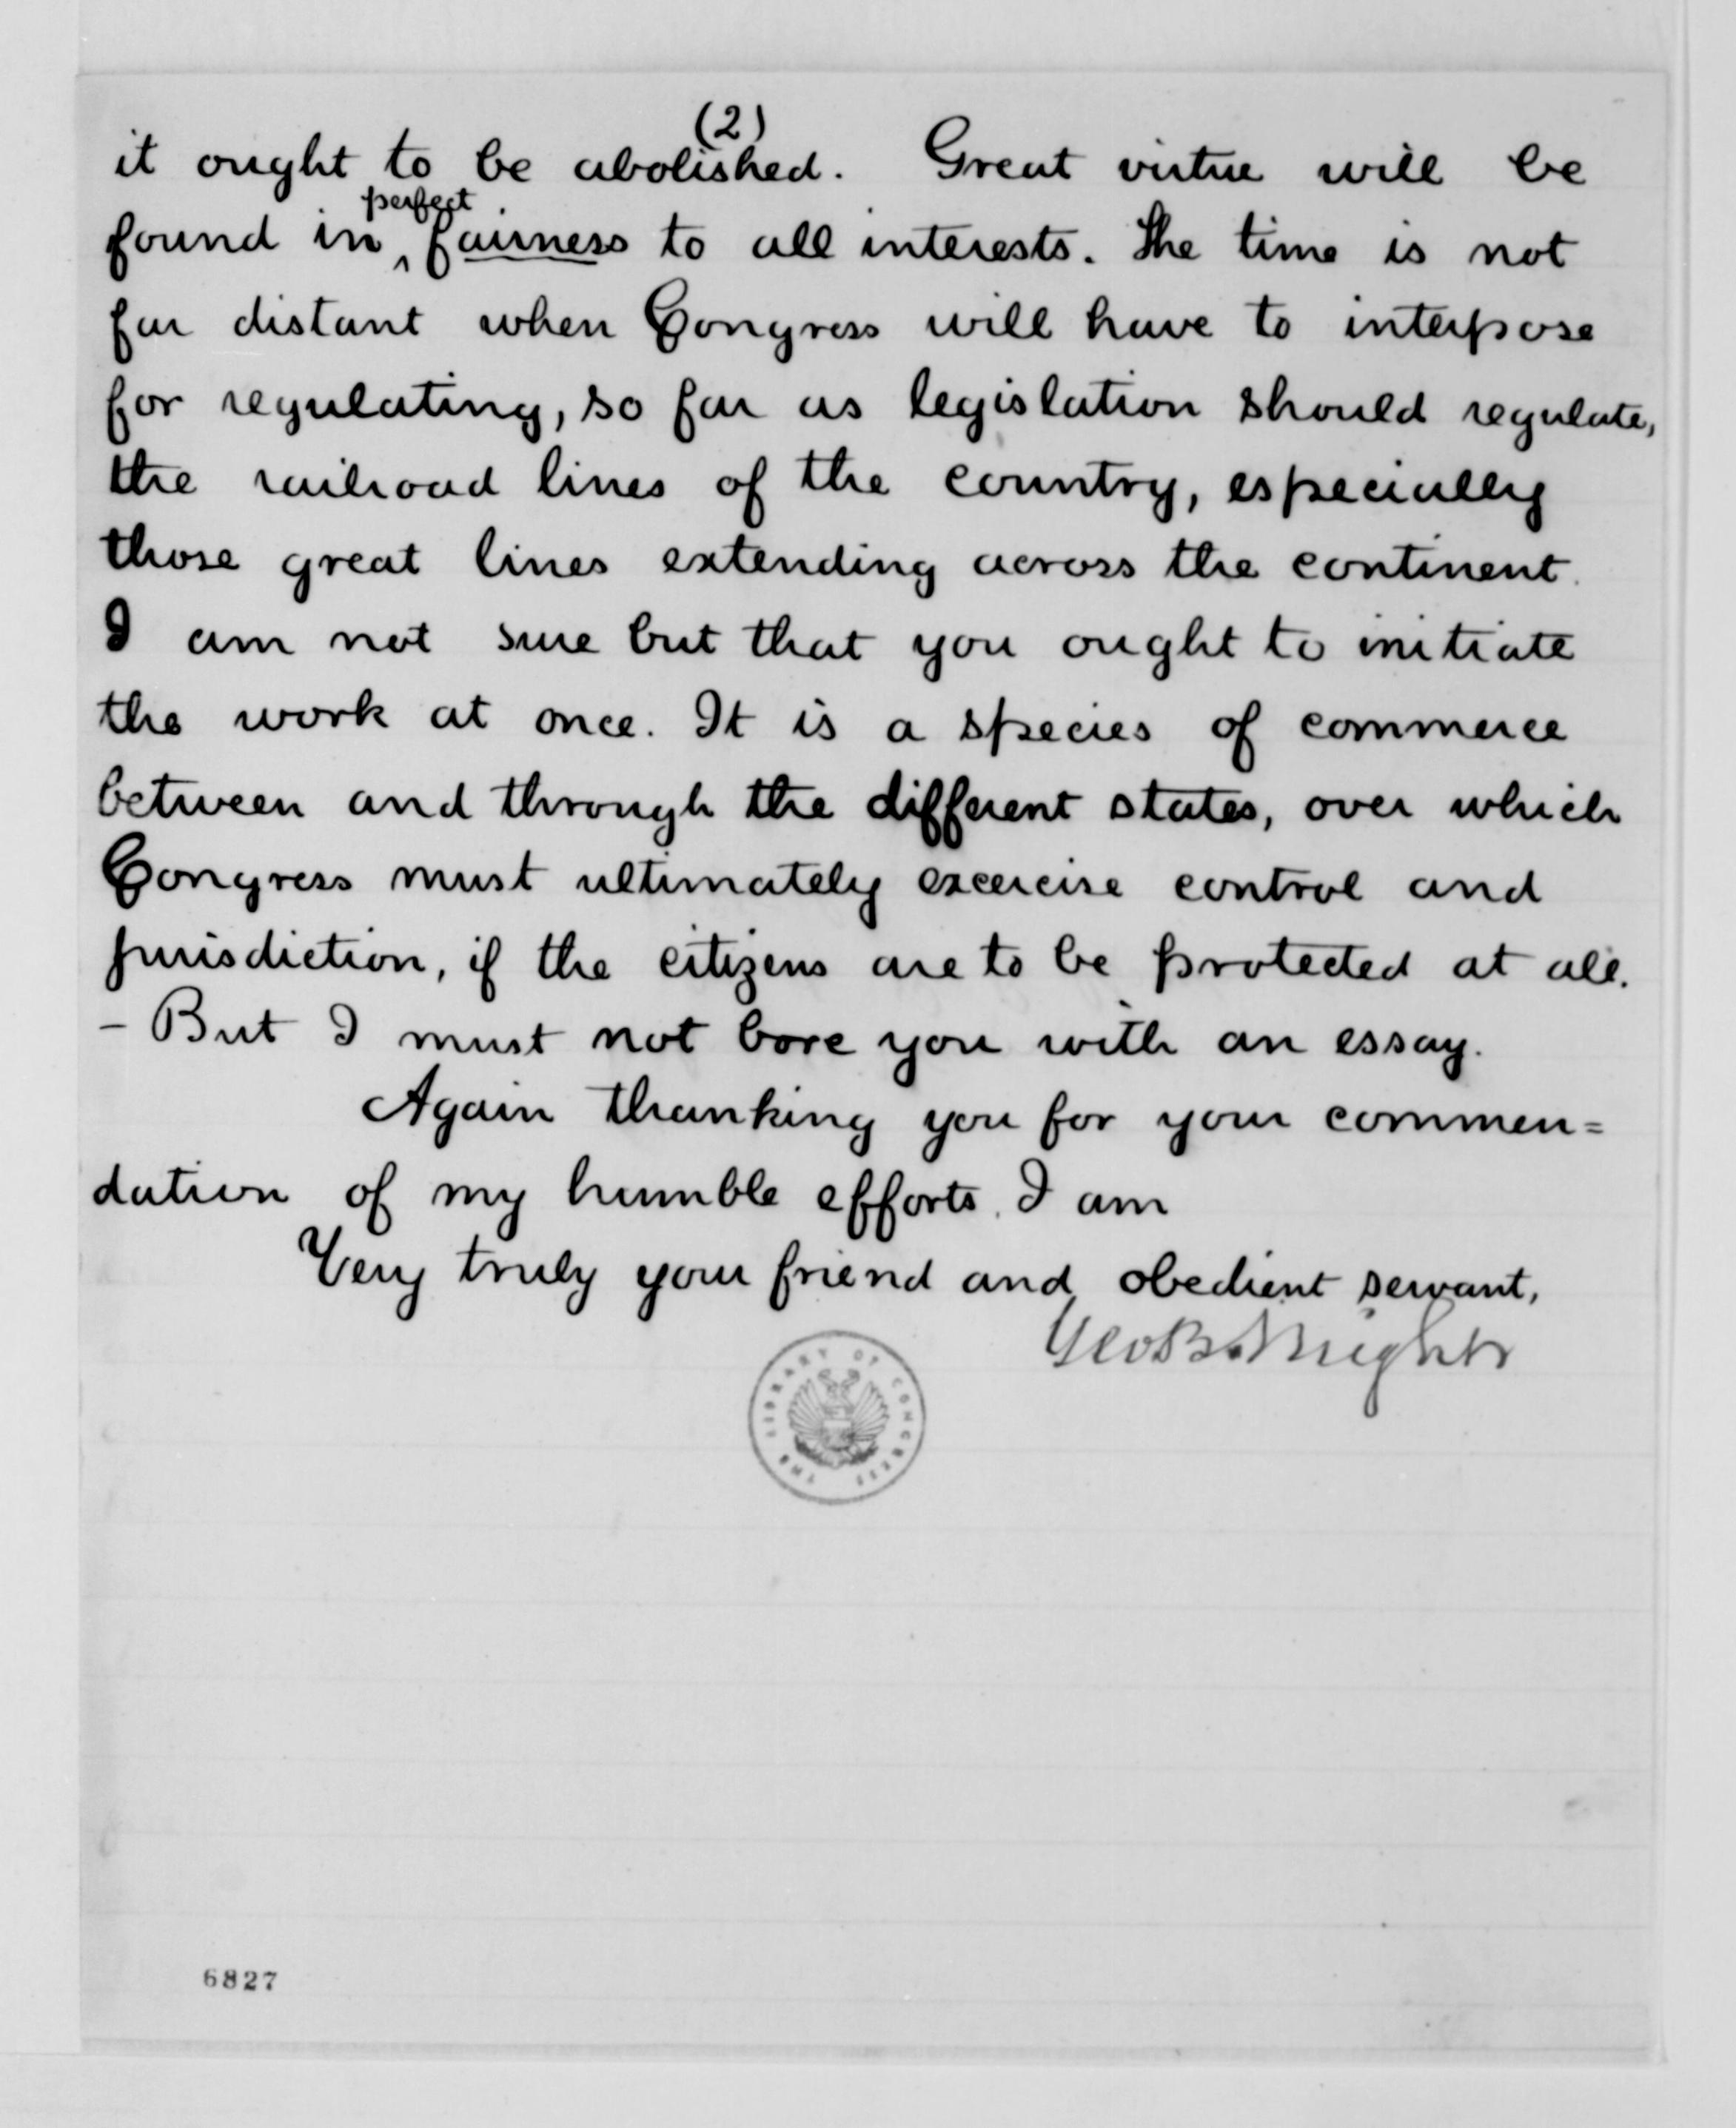 (2)
it ought to be abolished. Great virtue will be
perfect
found in ‸ fairness to all interests. The time is not
far distant when Congress will have to interpose
for regulating, so far as legislation should regulate,
the railroad lines of the country, especially
those great lines extending across the continent.
I am not sure but that you ought to initiate
the work at once. It is a species of commerce
between and through the different states, over which
Congress must ultimately excercise control and
jurisdiction, if the citizens are to be protected at all.
- But I must not bore you with an essay.
Again thanking you for your commen=
dation of my humble efforts. I am
Very truly your friend and obedient servant,
Geo B. Wright
THE LIBRARY OF CONGRESS
6827